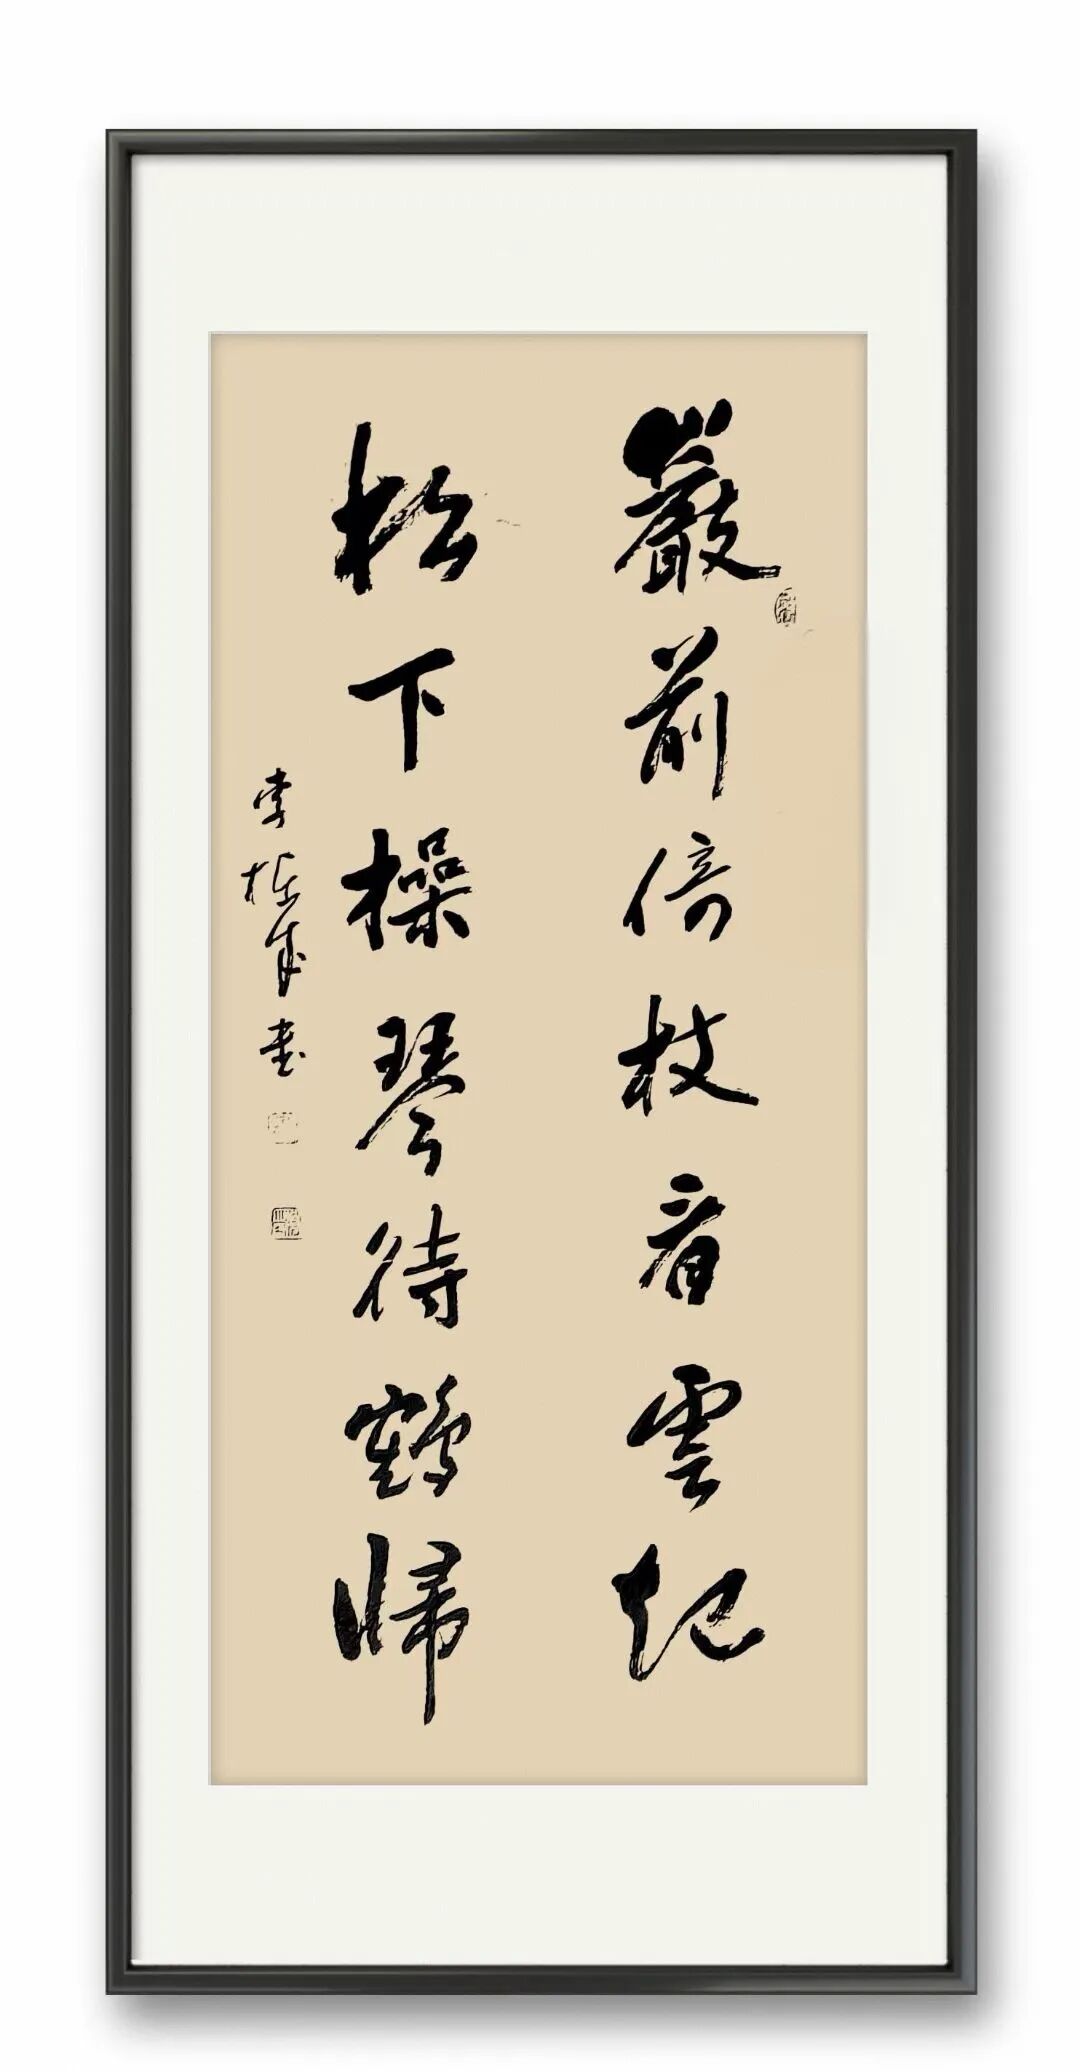 巖前倚杖看雲起
松下操琴待鶴歸
李 書